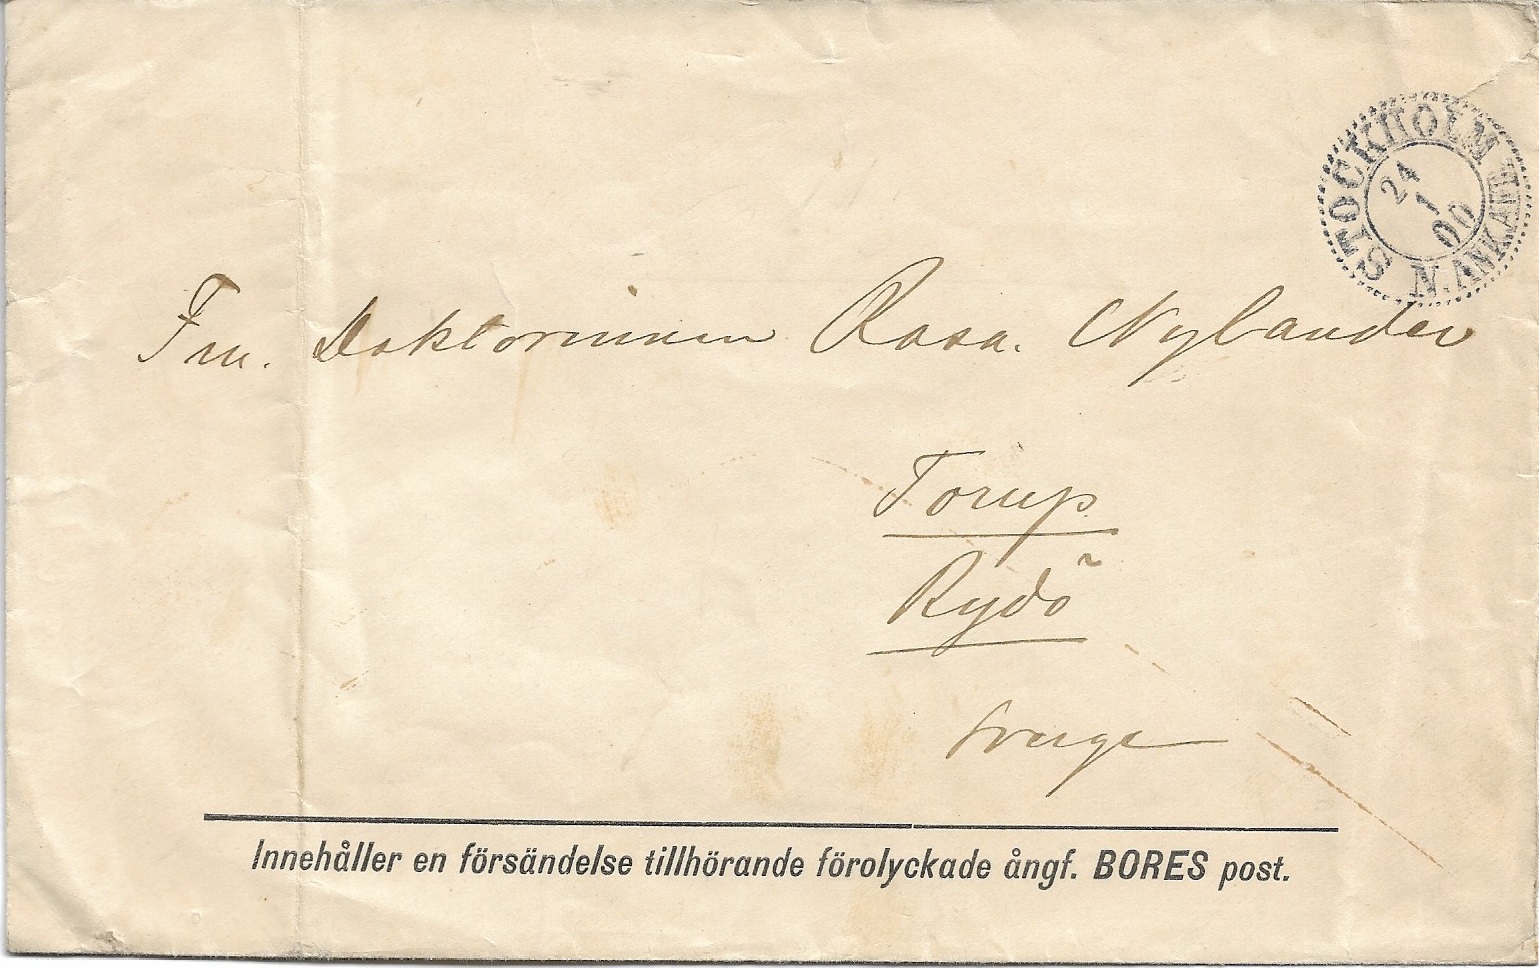 STOCKHOLM N. ANK. AFT
24
1
00
Fru. Doktorinnan Rosa. Nylander
Torup
Rydö
Sverge
Innehåller en försändelse tillhörande förolyckade ångf. BORES post.